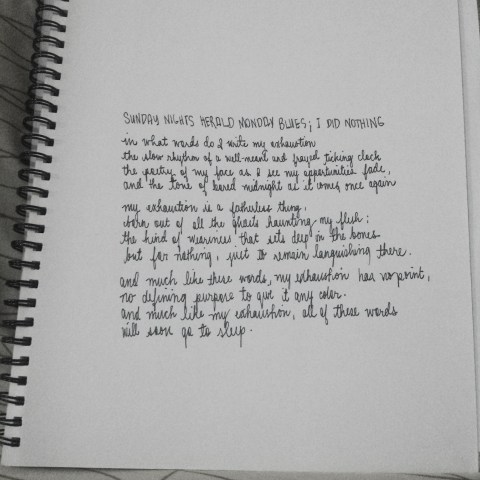 SUNDAY NIGHTS HERALD MONDAY BLUES; I DID NOTHING
in what words do I write my exhaustion
the slow rhythm of a well-meant and frayed ticking clock
the poetry of my face as I see my opportunities fade,
and the tone of bored midnight as it comes once again
my exhaustion is a fatherless thing,
born out of all the ghosts haunting my flesh:
the kind of weariness that sets deep in the bones
but for nothing, just to remain languishing there.
and much like these words, my exhaustion has no point,
no defining purpose to give it any color.
and much like my exhaustion, all of these words
will soon go to sleep.